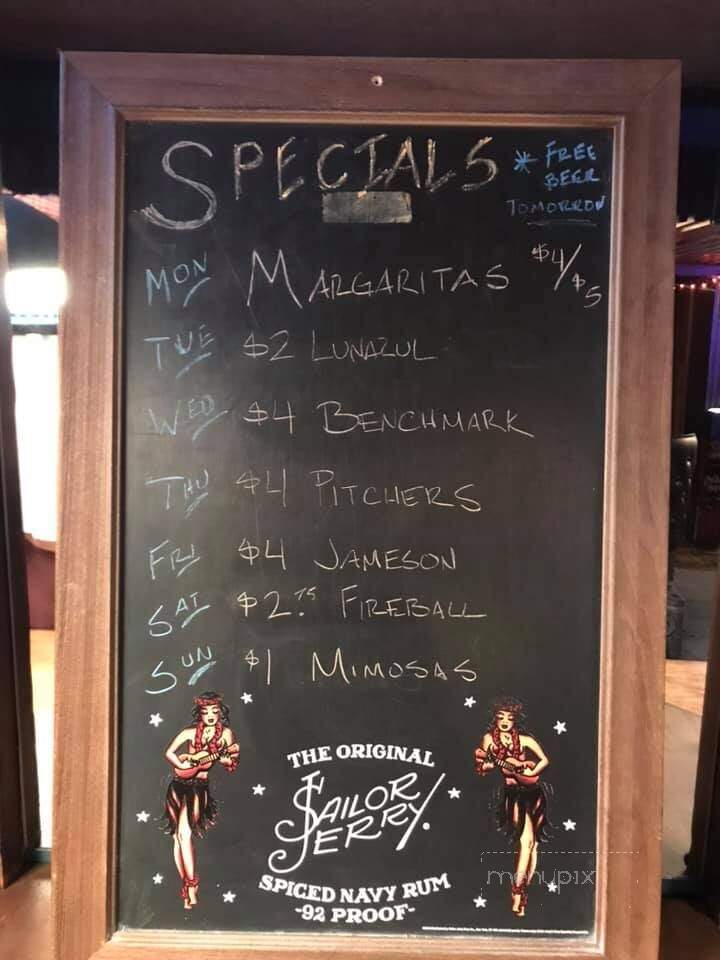 SPECIALS
* FREE
BEER
TOMORROW
MON MARGARITAS $4/$5
TUE $2 LUNAZUL
WED $4 BENCHMARK
THU $4 PITCHERS
FRI $4 JAMESON
SAT $2.75 FIREBALL
SUN $1 MIMOSAS
THE ORIGINAL
SAILOR
JERRY.
SPICED NAVY RUM
-92 PROOF-
menupix